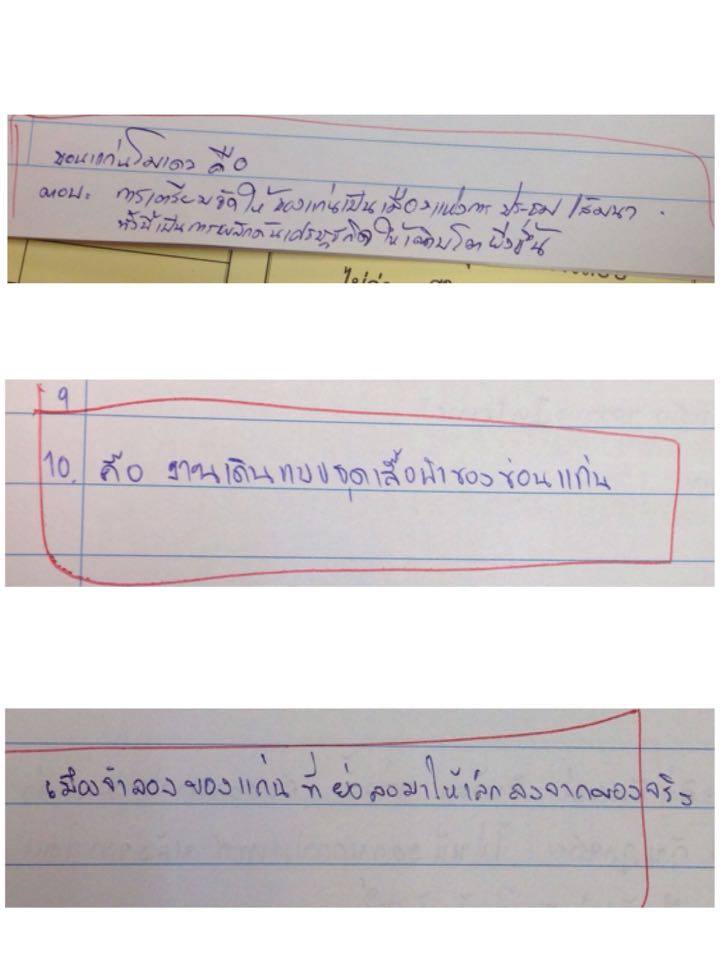 ขอนแก่นโมเดล คือ
ตอบ. การเตรียมจัดให้ ขอนแก่นเป็นเมืองแห่งการ ประชุม /สัมนา .
ทั้งนี้เป็นการผลักดันเศรษฐกิจให้เติบโต ยิ่งขึ้น
9
10. คือ งานเดินแบบชุดเสื้อผ้าของข่อนแก่น
เมืองจำลองขอนแก่น ที่ ย่อลงมาให้เล็ก ลงจากของจริง